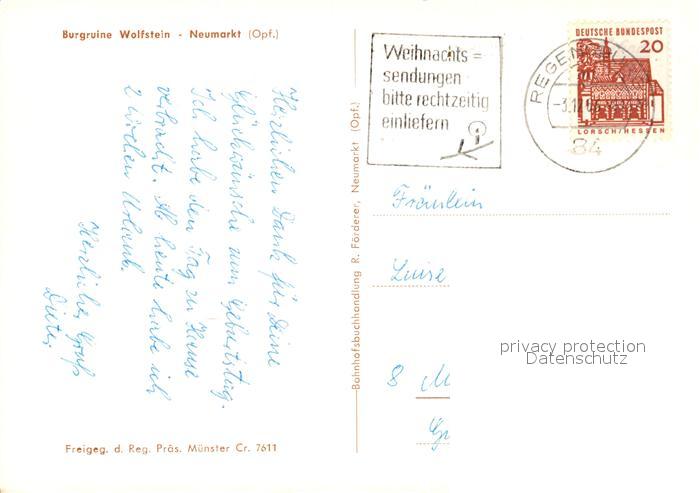 Burgruine Wolfstein - Neumarkt (Opf.)
Herzlichen Dank für Deine
Glückwünsche zum Geburtstag.
Ich habe den Tag zu Hause
verbracht. Ab heute habe ich
2 Wochen Urlaub.
Herzliche Grüß
Dieter
Freigeg. d. Reg. Präs. Münster Cr. 7611
Bahnhofsbuchhandlung R. Förderer, Neumarkt (Opf.)
Weihnachts=
sendungen
bitte rechtzeitig
einliefern
REGEN
-3.12.
84
DEUTSCHE BUNDESPOST
20
LORSCH/HESSEN
Fräulein
Luise
8 M
Gr
privacy protection
Datenschutz